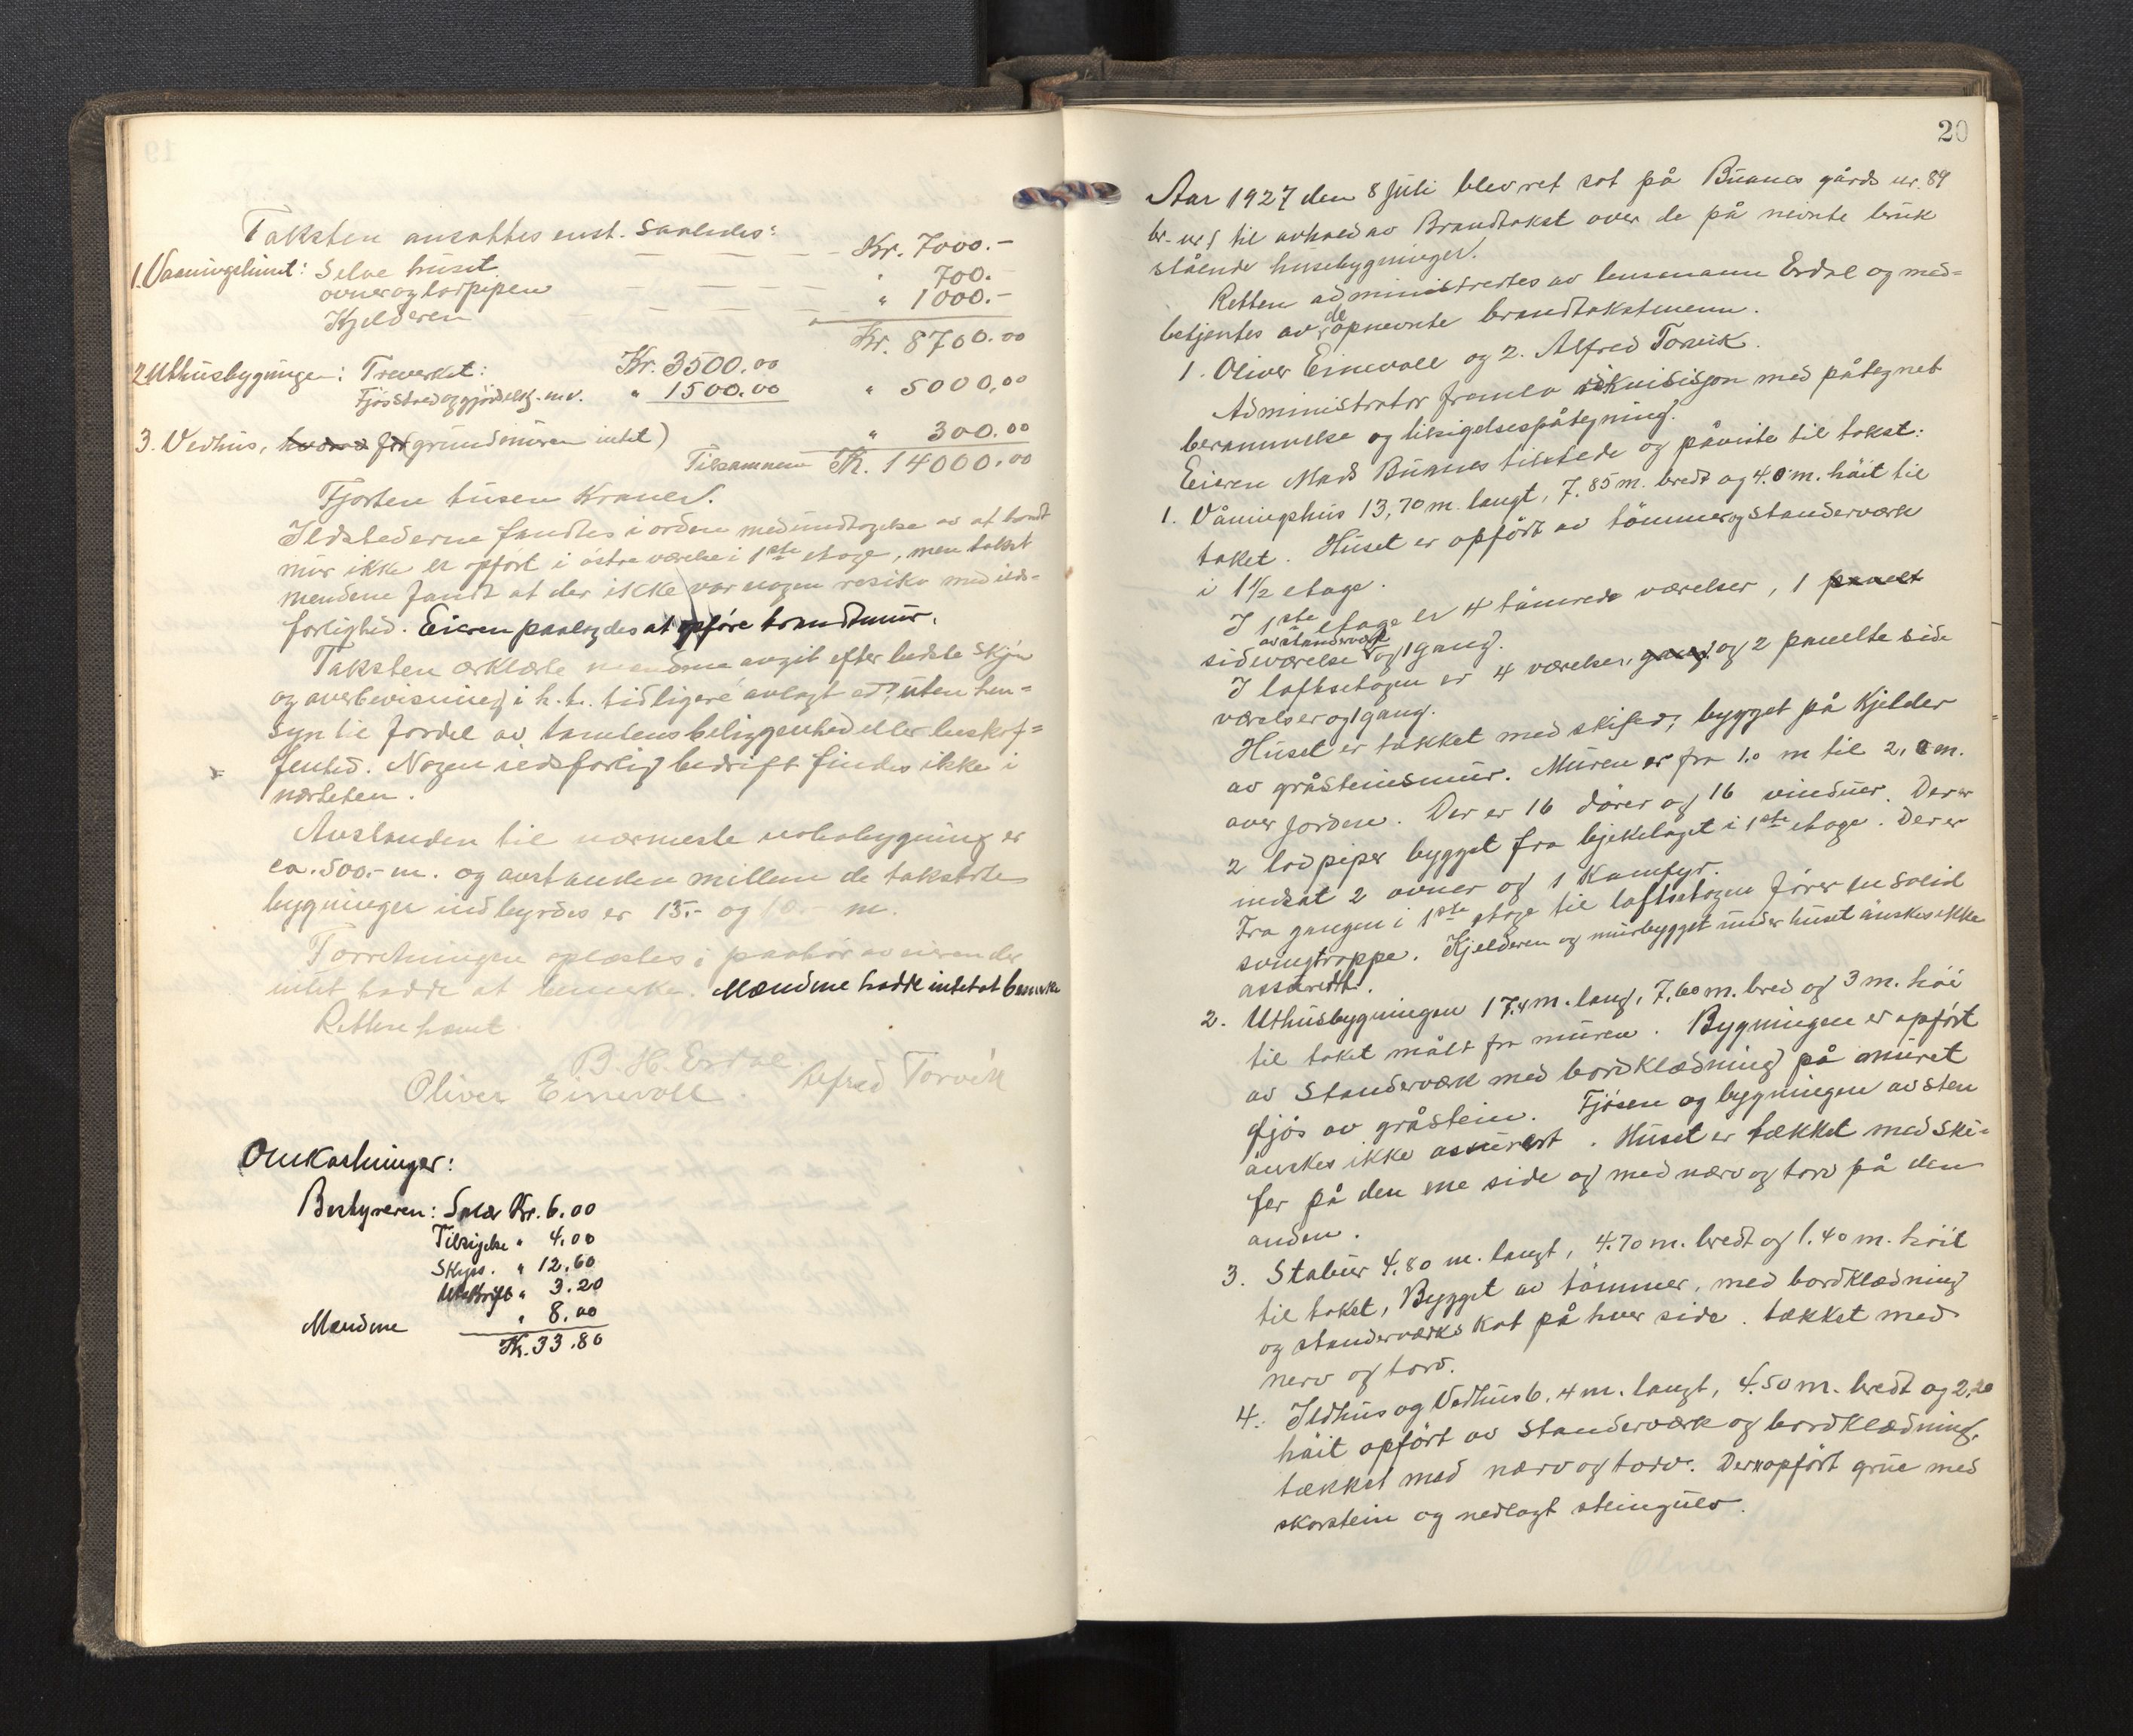 Taksten ansattes enst. saaledes:
1. Vaaningshuset: Selve huset — — — — Kr. 7000.-
ovner og lodpipen — — — — " 700.-
Kjelderen — — — — " 1000.-
Kr. 8700.00
2. Uthusbygningen: Treverket: Kr. 3500.00
Fjösstræd og gjödselkj. m.v. " 1500.00 " 5000.00
3. Vedhus, grundmuren intet) " 300.00
Tilsammen Kr. 14000.00
Fjorten tusen Kroner.
Ildstederne fandtes i orden med undtagelse av at brandt
mur ikke er opfört i östre værelse i 1ste etage, men takst
mendene fandt at der ikke var nogen resiko med ilds-
farlighed. Eieren paalagdes at opföre brandtmur.
Taksten ærklærte mændene avgit efter bedste skjön
og overbevisning i h. t. tidligere avlagt ed, uten hen-
syn til fordel av tomtens beliggenhed eller beskaf-
fenhed. Nogen ildsfarlig bedrift findes ikke i
nærheten.
Avstanden til nærmeste nabobygning er
ca. 500.- m. og avstanden mellem de taksterte
bygninger indbyrdes er 15.- og 10.- m.
Forretningen oplæstes i paahör av eieren der
intet hadde at bemerke. Mændene hadde intet at bemerke
Retten hævet.
B. H. Erdal.
Oliver Einevoll. Alfred Torvik
Omkostninger:
Bestyreren: Salær Kr. 6.00
Tilsigelse " 4.00
Skyss. " 12.60
Utskrift " 3.20
Mændene " 8.00
Kr. 33.80
20
Aar 1927 den 8 Juli blev ret sat på Buanes gårds nr. 89
br. nr. 1 til avhold av Brandtakst over de på nevnte bruk
stående husebygninger.
Retten administrertes av lensmann Erdal og med-
betjentes av de opnevnte brandtakstmenn.
1. Oliver Einevoll og 2. Alfred Torvik.
Administrator framla rekvisisjon med påtegnet
berammelse og tilsigelsespåtegning.
Eieren Mads Buanes tilstede og påviste til takst:
1. Våningshus 13,70 m. langt, 7.85 m. bredt og 4.0 m. höit til
taket. Huset er opfört av tömmer og standerværk
i 1½ etage.
I 1ste etage er 4 tömrede værelser, 1 panelt
sideværelse av standerværk og 1 gang.
I loftsetagen er 4 værelser, gang og 2 panelte side
værelser og 1 gang.
Huset er tækket med skifer, bygget på Kjelder
av gråsteinsmur. Muren er fra 1.0 m til 2,0 m.
over jorden. Der er 16 dörer og 16 vinduer. Der er
2 lodpiper bygget fra bjelkelaget i 1ste etage. Der er
indsat 2 ovner og 1 Kamfyr.
Fra gangen i 1ste etage til loftsetagen förer en solid
svingtrappe. Kjelderen og murbygget under huset önskes ikke
assurert.
2. Uthusbygningen 17,4 m. lang, 7,60 m. bred og 3 m. höi
til taket målt fra muren. Bygningen er opfört
av Standerværk med bordklædning på muret
fjös av gråstein. Fjösen og bygningen av sten
önskes ikke assurert. Huset er tækket med ski-
fer på den ene side og med nærv og torv på den
anden.
3. Stabur 4.80 m. langt, 4.70 m. bredt og 1.40 m. höit
til taket, Bygget av tömmer, med bordklædning
og standerværks kot på hver side. tækket med
nerv og torv.
4. Ildhus og Vedhus 6.4 m. langt, 4.50 m. bredt og 2,20
höit opfört av Standerværk og bordklædning.
tækket med nærv og torv. Der er opfört grue med
skorstein og nedlagt steingulv.